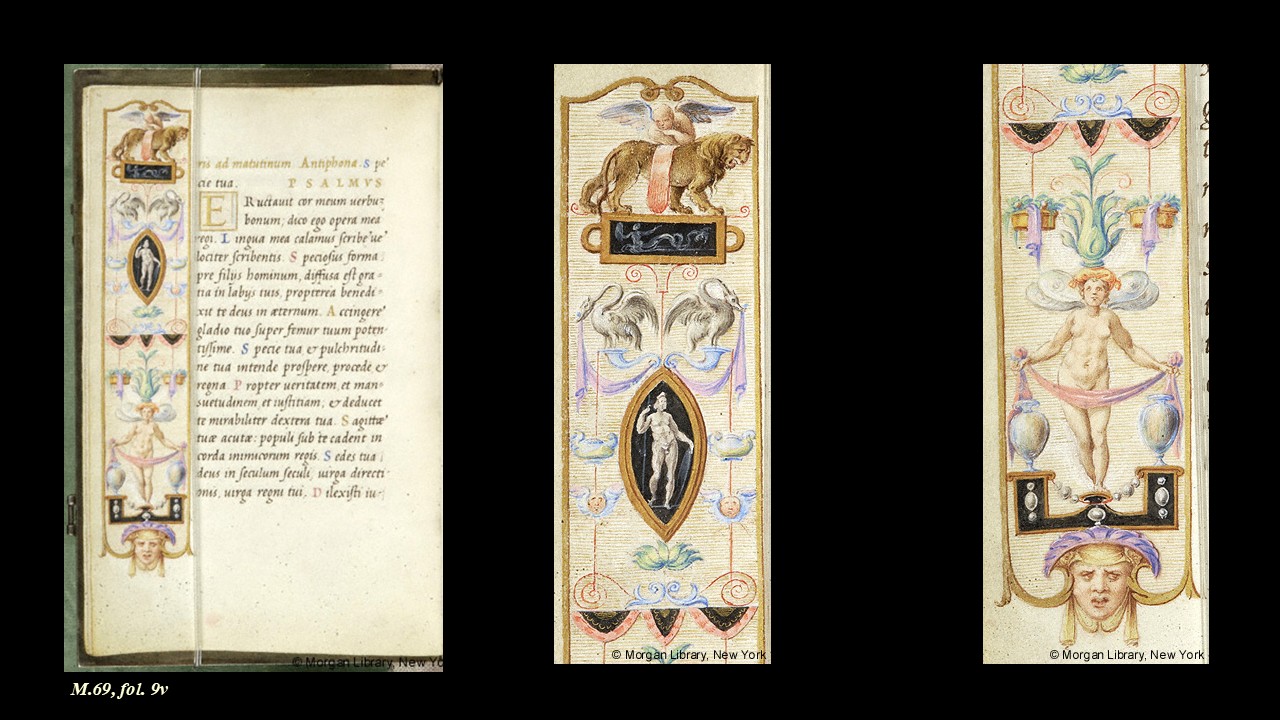 ris ad matutinum Antiphona. S pe
cie tua. PSALMVS
E Ructauit cor meum uerbu
bonum; dico ego opera mea
regi. L ingua mea calamus scribe ue
lociter scribentis. S peciosus forma
pre filijs hominum, diffusa est gra
tia in labijs tuis, propterea benedi
xit te deus in æternum. A ccingere
gladio tuo super femur tuum poten
tissime. S pecie tua, & pulchritudi
ne tua intende prospere, procede &
regna. P ropter ueritatem, et man
suetudinem, et iustitiam; & deducet
te mirabiliter dextera tua. S agittæ
tuæ acutæ: populi sub te cadent in
corda inimicorum regis. S edes tua
deus in seculum seculi, uirga directi
onis, uirga regni tui. D ilexisti iu
© Morgan Library, New Yo
M.69, fol. 9v
© Morgan Library, New York
© Morgan Library, New York